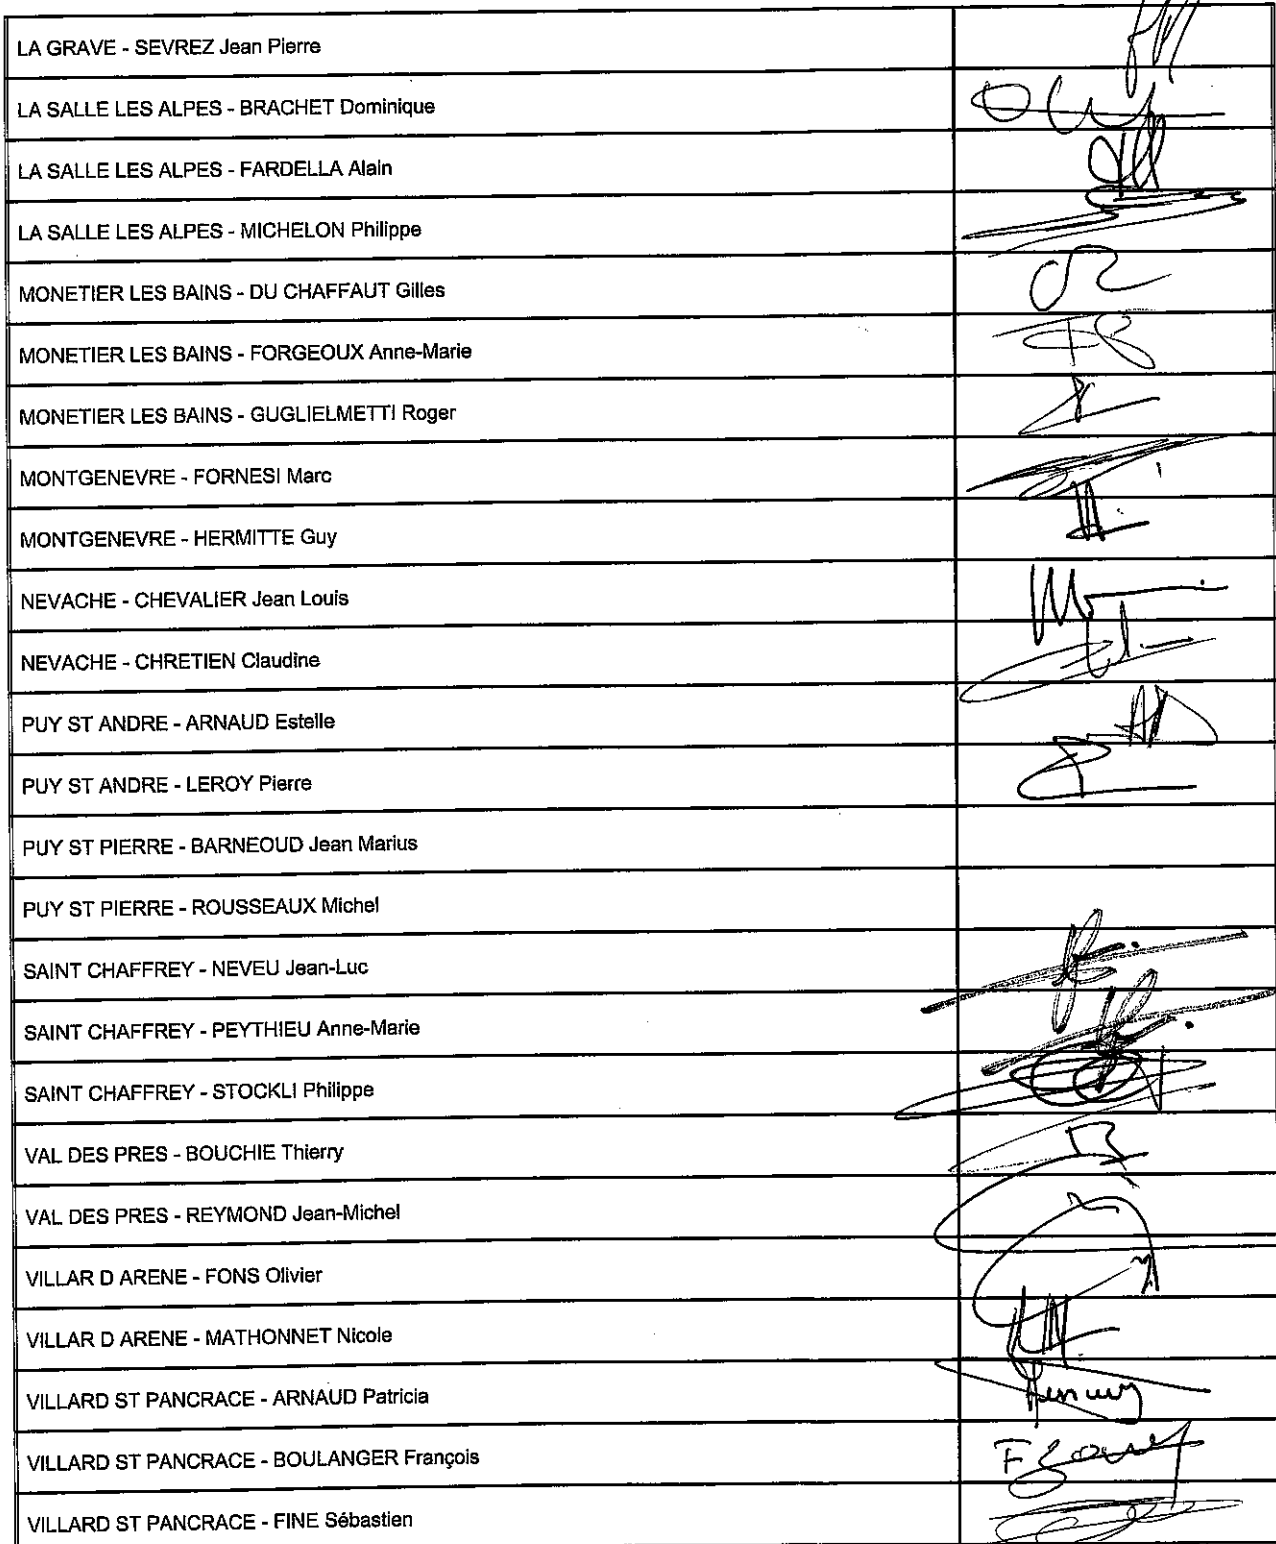 LA GRAVE - SEVREZ Jean Pierre
LA SALLE LES ALPES - BRACHET Dominique
LA SALLE LES ALPES - FARDELLA Alain
LA SALLE LES ALPES - MICHELON Philippe
MONETIER LES BAINS - DU CHAFFAUT Gilles
MONETIER LES BAINS - FORGEOUX Anne-Marie
MONETIER LES BAINS - GUGLIELMETTI Roger
MONTGENEVRE - FORNESI Marc
MONTGENEVRE - HERMITTE Guy
NEVACHE - CHEVALIER Jean Louis
NEVACHE - CHRETIEN Claudine
PUY ST ANDRE - ARNAUD Estelle
PUY ST ANDRE - LEROY Pierre
PUY ST PIERRE - BARNEOUD Jean Marius
PUY ST PIERRE - ROUSSEAUX Michel
SAINT CHAFFREY - NEVEU Jean-Luc
SAINT CHAFFREY - PEYTHIEU Anne-Marie
SAINT CHAFFREY - STOCKLI Philippe
VAL DES PRES - BOUCHIE Thierry
VAL DES PRES - REYMOND Jean-Michel
VILLAR D ARENE - FONS Olivier
VILLAR D ARENE - MATHONNET Nicole
VILLARD ST PANCRACE - ARNAUD Patricia
VILLARD ST PANCRACE - BOULANGER François
VILLARD ST PANCRACE - FINE Sébastien